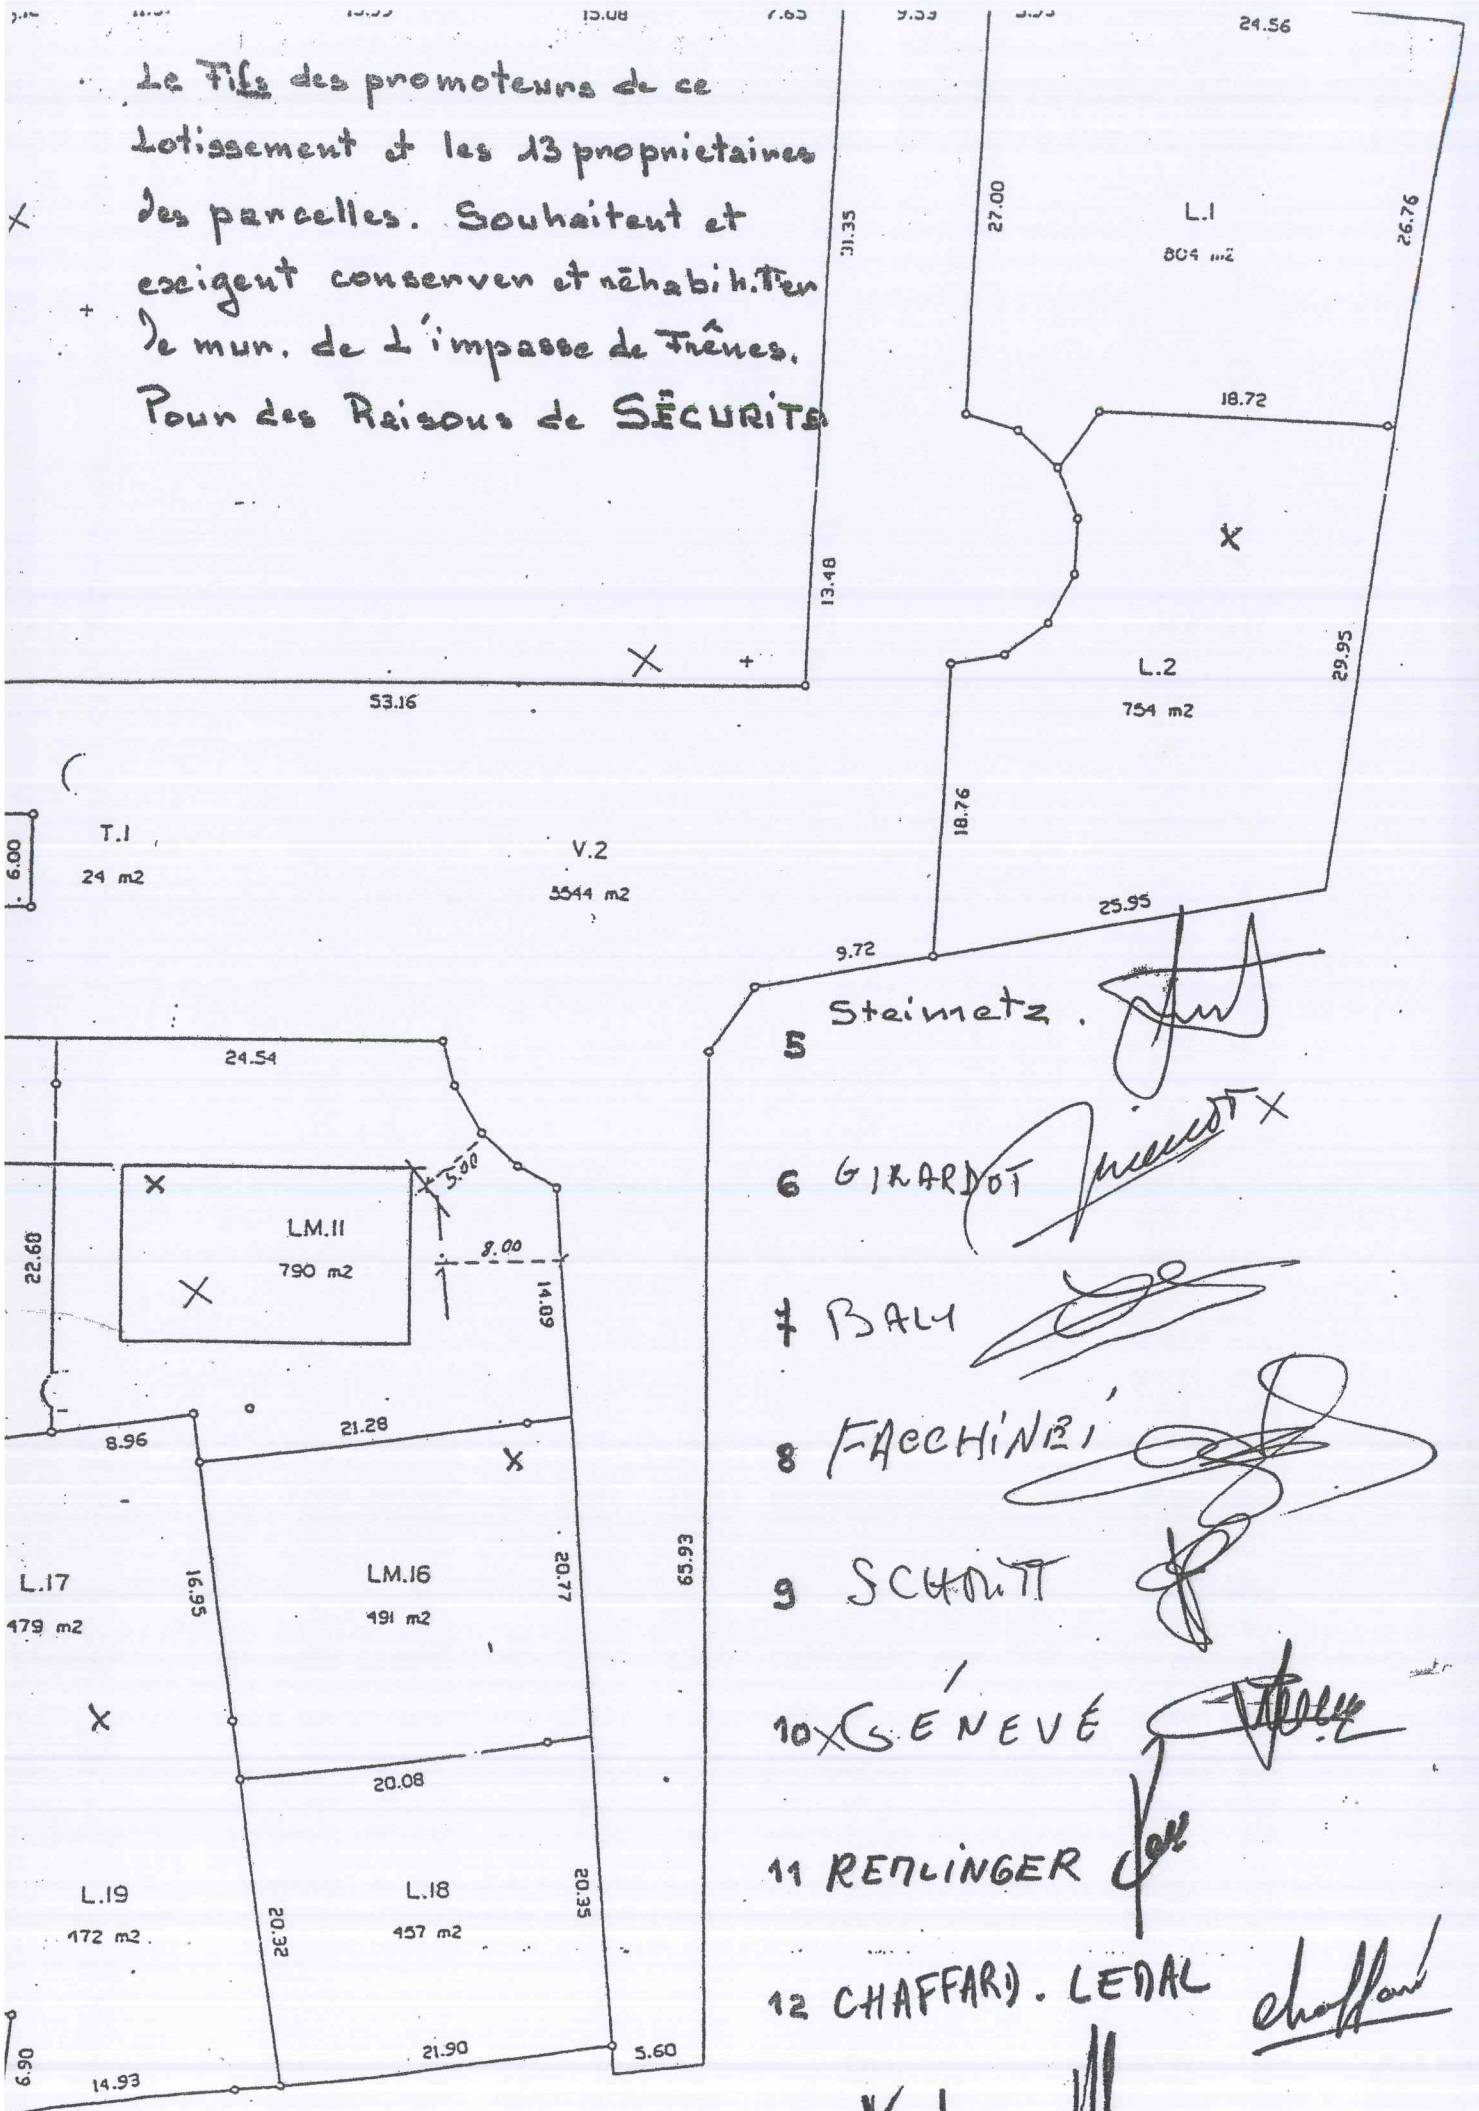 15.08
7.65
9.53
24.56
Le Fils des promoteurs de ce
Lotissement et les 13 proprietaires
des parcelles. Souhaitent et
exigent conserver et réhabiliter
le mur. de L'impasse de Frênes.
Pour des Raisons de SÉCURITÉ
31.35
27.00
L.1
804 m2
26.76
18.72
13.48
X
53.16
L.2
754 m2
29.95
18.76
6.00
T.1
24 m2
V.2
3544 m2
25.95
9.72
5 Steimetz.
24.54
6 GIRARDOT
5.00
LM.11
790 m2
8.00
22.60
14.09
7 BALY
8.96
21.28
8 FACCHINEI
L.17
479 m2
16.95
LM.16
491 m2
20.77
65.93
9 SCHMITT
10 X GÉNEVÉ
20.08
11 REMLINGER
L.19
472 m2
20.32
L.18
457 m2
20.35
12 CHAFFARD. LEDAL chaffard
6.90
14.93
21.90
5.60